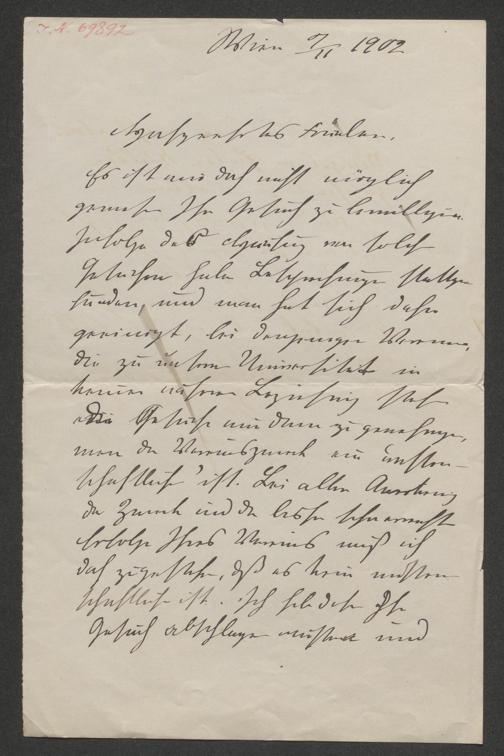 I.N. 69892
Wien 9/11 1902
Hochgeehrtes Fräulein,
Es ist mir doch nicht möglich
gewesen Ihr Gesuch zu bewilligen.
Infolge der Häufung von solch
Gesuchen haben Besprechungen stattge-
funden, und man hat sich dahin
geeinigt, bei denjenigen Vereinen,
die zu unserer Universität in
keiner näheren Beziehung stehen
die Gesuche nur dann zu genehmigen,
wenn der Vereinszweck ein wissen-
schaftlicher ist. Bei aller Anerkennung
der Zwecke und der bisher schon erreichten
Erfolge Ihres Vereins muß ich
doch zugestehen, daß es kein wissen-
schaftlicher ist. Ich habe daher Ihr
Gesuch abschlagen müssen und